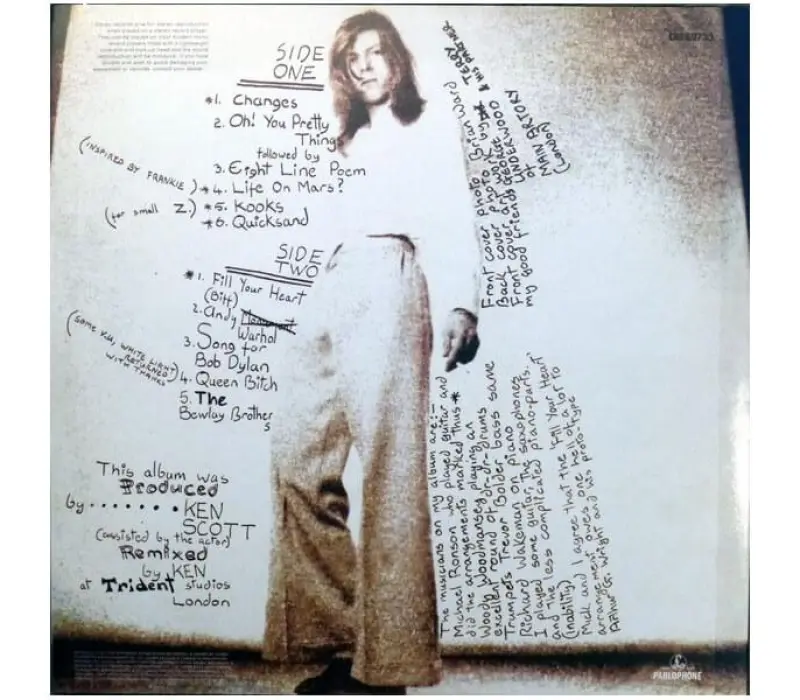 SIDE
ONE
*1. Changes
2. Oh! You Pretty
Things
followed by
3. Eight Line Poem
(INSPIRED BY FRANKIE) *4. Life On Mars?
(for small Z.) *5. Kooks
*6. Quicksand
SIDE
TWO
*1. Fill Your Heart
(Biff)
2. Andy
Warhol
3. Song for
Bob Dylan
(SOME V.U. WHITE LIGHT
RETURNED
WITH THANKS)
4. Queen Bitch
5. The
Bewlay Brother
s
This album was
Produced
by ........ KEN
SCOTT
(assisted by the actor)
Remixed
by KEN
at Trident studios
London
Front cover photo Brian Ward
Back cover photo by
Front cover art work by TERRY
& HIS PARTNER
GEORGE
my good friends UNDERWOOD
of
MAIN ARTORY
(LONDON)
The musicians on my album are:-
Michael Ronson who played guitar and
did the arrangements marked thus *
Woody Woodmansey playing an
excellent round of dr-dr-drums
Trumpets Trevor Bolder bass same
Richard Wakeman on piano
I played some guitar, the saxophones
and the less complicated piano-parts.
(inability)
Mick and I agree that the 'Fill Your Heart
arrangement owes one hell of a lot to
Arthur G. Wright and his proto-type
PARLOPHONE